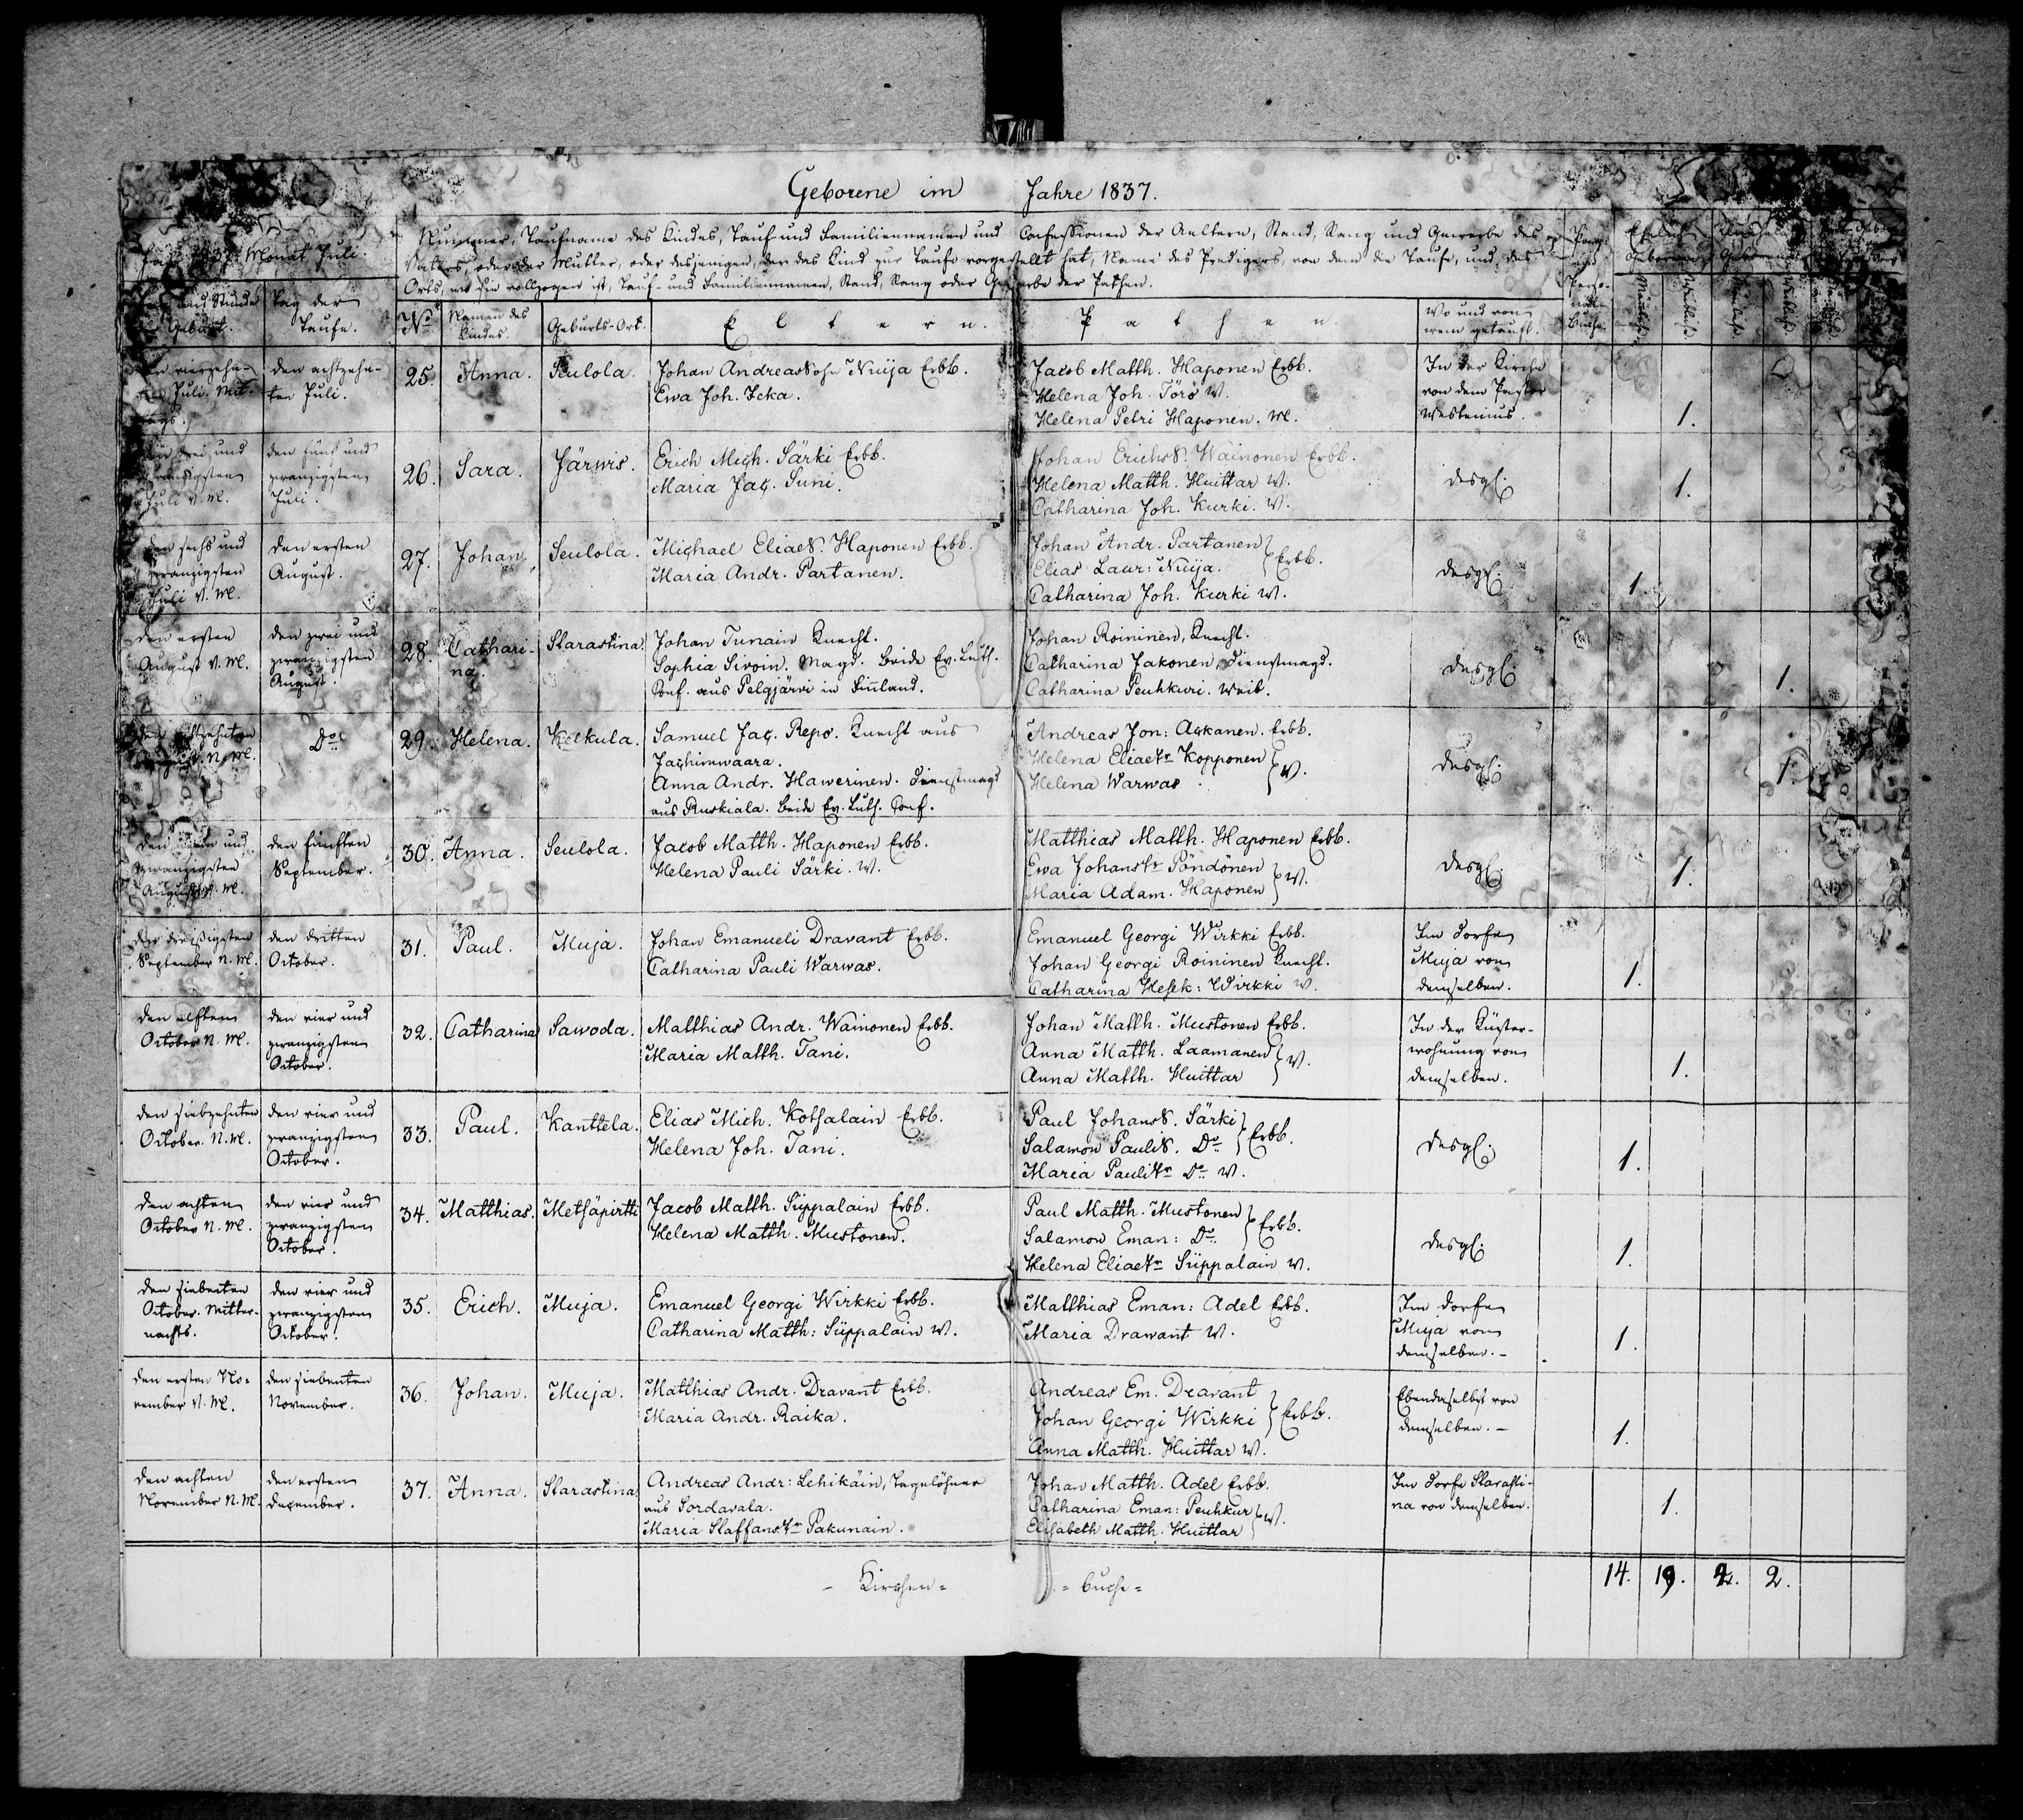 Geborene im Jahre 1837.
Monat Juli.
Nummer, Taufname des Kindes, Tauf und Familiennamen und Confessionen der Aeltern, Stand, Rang und Gewerbe des
Vaters, oder der Mutter, oder desjenigen, der das Kind zur Taufe vorgestellt hat, Name des Predigers, von dem die Taufe, und des
Orts, wo sie vollzogen ist, Tauf- und Familiennamen, Stand, Rang oder Gewerbe der Pathen.
und Stunde
Geburt.
Tag der
Taufe.
No
Namen des
Kindes.
Geburts-Ort.
Eltern.
Pathen.
Wo und von
wem getauft.
vierzehn-
Juli. Mit-
tags.
den achtzehn-
ten Juli.
25.
Anna.
Seulola.
Johan Andreas Sohn Nuija Erbb.
Ewa Joh. Icka.
Jacob Matth. Haponen Erbb.
Helena Joh. Törö W.
Helena Petri Haponen. M.
In der Kirche
von dem Pastor
Westenius.
1.
drei und
zwanzigsten
Juli V. M.
den fünf und
zwanzigsten
Juli.
26.
Sara.
Järwis.
Erich Mich. Särki Erbb.
Maria Jac. Suni.
Johan Erichs. Wainonen Erbb.
Helena Matth. Huittar W.
Catharina Joh. Kurki. W.
desgl.
1.
den sechs und
zwanzigsten
Juli V. M.
den ersten
August.
27.
Johan.
Seulola.
Michael Elias. Haponen Erbb.
Maria Andr. Partanen.
Johan Andr. Partanen
Elias Laur: Nuija. } Erbb.
Catharina Joh. Kurki W.
desgl.
1.
den ersten
August V. M.
den zwei und
zwanzigsten
August.
28.
Cathari-
na.
Starastina.
Johan Tunain Knecht.
Sophia Sivoin. Magd. beide Ev. Luth.
Conf. aus Pelgjärvi in Finland.
Johan Roininen, Knecht.
Catharina Jakonen, Dienstmagd.
Catharina Peuhkuri. Weib.
desgl.
1.
August N. M.
Do
29.
Helena.
Kelkula.
Samuel Jac. Repo. Knecht aus
Jachimwaara.
Anna Andr. Hawerinen. Dienstmagd
aus Ruskiala. beide Ev. Luth. Conf.
Andreas Jon: Ackanen. Erbb.
Helena Eliae Tr Kopponen
Helena Warwas } W.
desgl.
1.
und
zwanzigsten
August N. M.
den fünften
September.
30.
Anna.
Seulola.
Jacob Matth. Haponen Erbb.
Helena Pauli Särki. W.
Matthias Matth. Haponen Erbb.
Ewa Johans Tr Pöndönen
Maria Adam. Haponen } W.
desgl.
1.
den dreißigsten
September N. M.
den dritten
October.
31.
Paul.
Muja.
Johan Emanueli Dravant Erbb.
Catharina Pauli Warwas.
Emanuel Georgi Wirkki Erbb.
Johan Georgi Roininen Knecht.
Catharina Hesek: Wirkki W.
Im Dorfe
Muja von
demselben.
1.
den elften
October N. M.
den vier und
zwanzigsten
October.
32.
Catharina
Sawoda.
Matthias Andr. Wainonen Erbb.
Maria Matth. Tani.
Johan Matth. Mustonen Erbb.
Anna Matth. Laamanen
Anna Matth. Huittar } W.
In der Küster-
wohnung von
demselben.
1.
den siebzehnten
October. N. M.
den vier und
zwanzigsten
October.
33.
Paul.
Kanttela.
Elias Mich. Kotsalain Erbb.
Helena Joh. Tani.
Paul Johans. Särki
Salamon Paulis. Do } Erbb.
Maria Pauli Tr Do W.
desgl.
1.
den achten
October N. M.
den vier und
zwanzigsten
October.
34.
Matthias.
Metsäpirtti
Jacob Matth. Süppalain Erbb.
Helena Matth. Mustonen.
Paul Matth. Mustonen
Salamon Eman: Do } Erbb.
Helena Eliae Tr Süppalain W.
desgl.
1.
den siebenten
October. Mitter-
nachts.
den vier und
zwanzigsten
October.
35.
Erich.
Muja.
Emanuel Georgi Wirkki Erbb.
Catharina Matth: Süppalain W.
Matthias Eman: Adel Erbb.
Maria Drawant W.
Im Dorfe
Muja von
demselben.-
1.
den ersten No-
vember V. M.
den siebenten
November.
36.
Johan.
Muja.
Matthias Andr. Dravant Erbb.
Maria Andr. Raika.
Andreas Em. Dravant
Johan Georgi Wirkki } Erbb.
Anna Matth. Huittar W.
Ebendaselbst von
demselben.-
1.
den achten
November N. M.
den ersten
December.
37.
Anna.
Starastina
Andreas Andr: Lehikäin, Tagelöhner
aus Sordavala.
Maria Staffans Tr Pakunain.
Johan Matth. Adel Erbb.
Catharina Eman: Peuhkur
Elisabeth Matth. Huittar } W.
Im Dorfe Starasti-
na von demselben.
1.
- Kirchen= =buch=
14. 19. 2. 2.